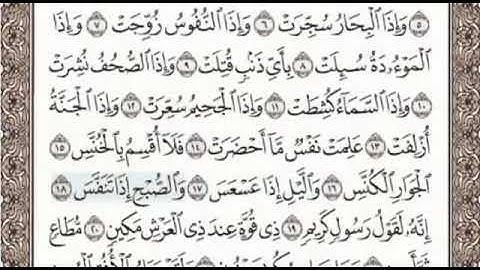 ٥ وَإِذَا ٱلْبِحَارُ سُجِّرَتْ ٦ وَإِذَا ٱلنُّفُوسُ زُوِّجَتْ ٧ وَإِذَا
ٱلْمَوْءُۥدَةُ سُئِلَتْ ٨ بِأَىِّ ذَنۢبٍ قُتِلَتْ ٩ وَإِذَا ٱلصُّحُفُ نُشِرَتْ
١٠ وَإِذَا ٱلسَّمَآءُ كُشِطَتْ ١١ وَإِذَا ٱلْجَحِيمُ سُعِّرَتْ ١٢ وَإِذَا ٱلْجَنَّةُ
أُزْلِفَتْ ١٣ عَلِمَتْ نَفْسٌ مَّآ أَحْضَرَتْ ١٤ فَلَآ أُقْسِمُ بِٱلْخُنَّسِ ١٥
ٱلْجَوَارِ ٱلْكُنَّسِ ١٦ وَٱلَّيْلِ إِذَا عَسْعَسَ ١٧ وَٱلصُّبْحِ إِذَا تَنَفَّسَ ١٨
إِنَّهُۥ لَقَوْلُ رَسُولٍ كَرِيمٍ ١٩ ذِى قُوَّةٍ عِندَ ذِى ٱلْعَرْشِ مَكِينٍ ٢٠ مُّطَاعٍ